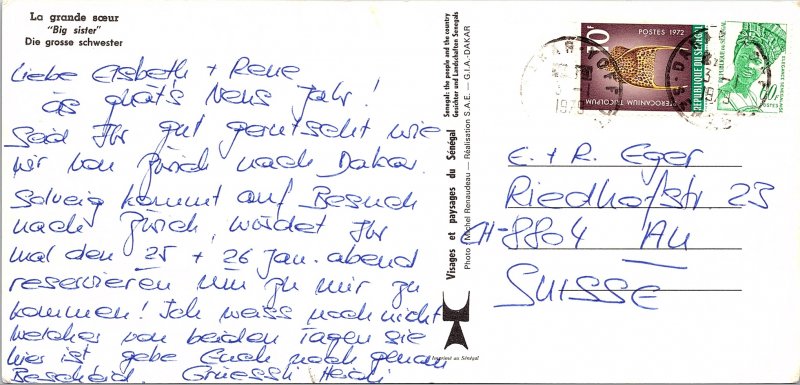 La grande sœur
"Big sister"
Die grosse schwester
Liebe Elsbeth + Rene
äs guäts Neus Jahr!
Seid Ihr gut gerutscht wie
wir von Zürich nach Dakar.
Solveig kommt auf Besuch
nach Zürich, würdet Ihr
mal den 25 + 26 Jan. abend
reservieren um zu mir zu
kommen! Ich weiss noch nicht
welcher von beiden Tagen sie
hier ist gebe Euch noch genau
Bescheid Grüessli Heidi
Visages et paysages du Sénégal
Senegal: the people and the country
Gesichter und Landschaften Senegals
Photo : Michel Renaudeau — Réalisation S.A.E. — G.I.A.-DAKAR
Imprimé au Sénégal
POSTES 1972
REPUBLIQUE DU SENEGAL
PTEROCANIUM TRICOLPUM
REPUBLIQUE DU SENEGAL
60F
POSTES
ELEGANCE SENEGALAISE
DAKAR YOFF
E. + R. Eger
Riedhofstr. 23
CH-8804 AU
SUISSE